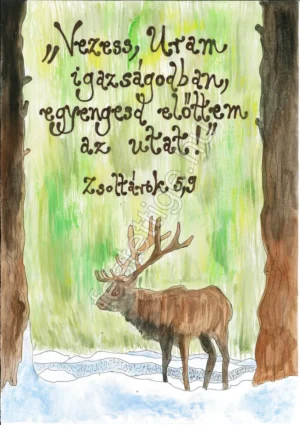 „Vezess, Uram
igazságodban,
egyengesd előttem
az utat!”
Zsoltárok 5,9